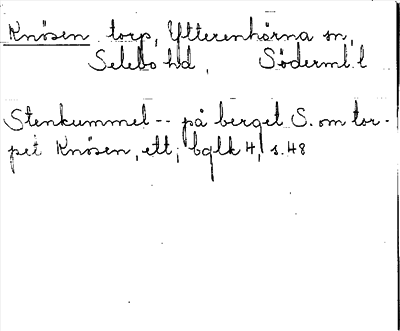 Knösen torp, Ytterenhörna sn,
Selebo hd, Söderml. l
Stenkummel -- på berget S. om tor-
pet Knösen, ett; bglk 4, s. 48